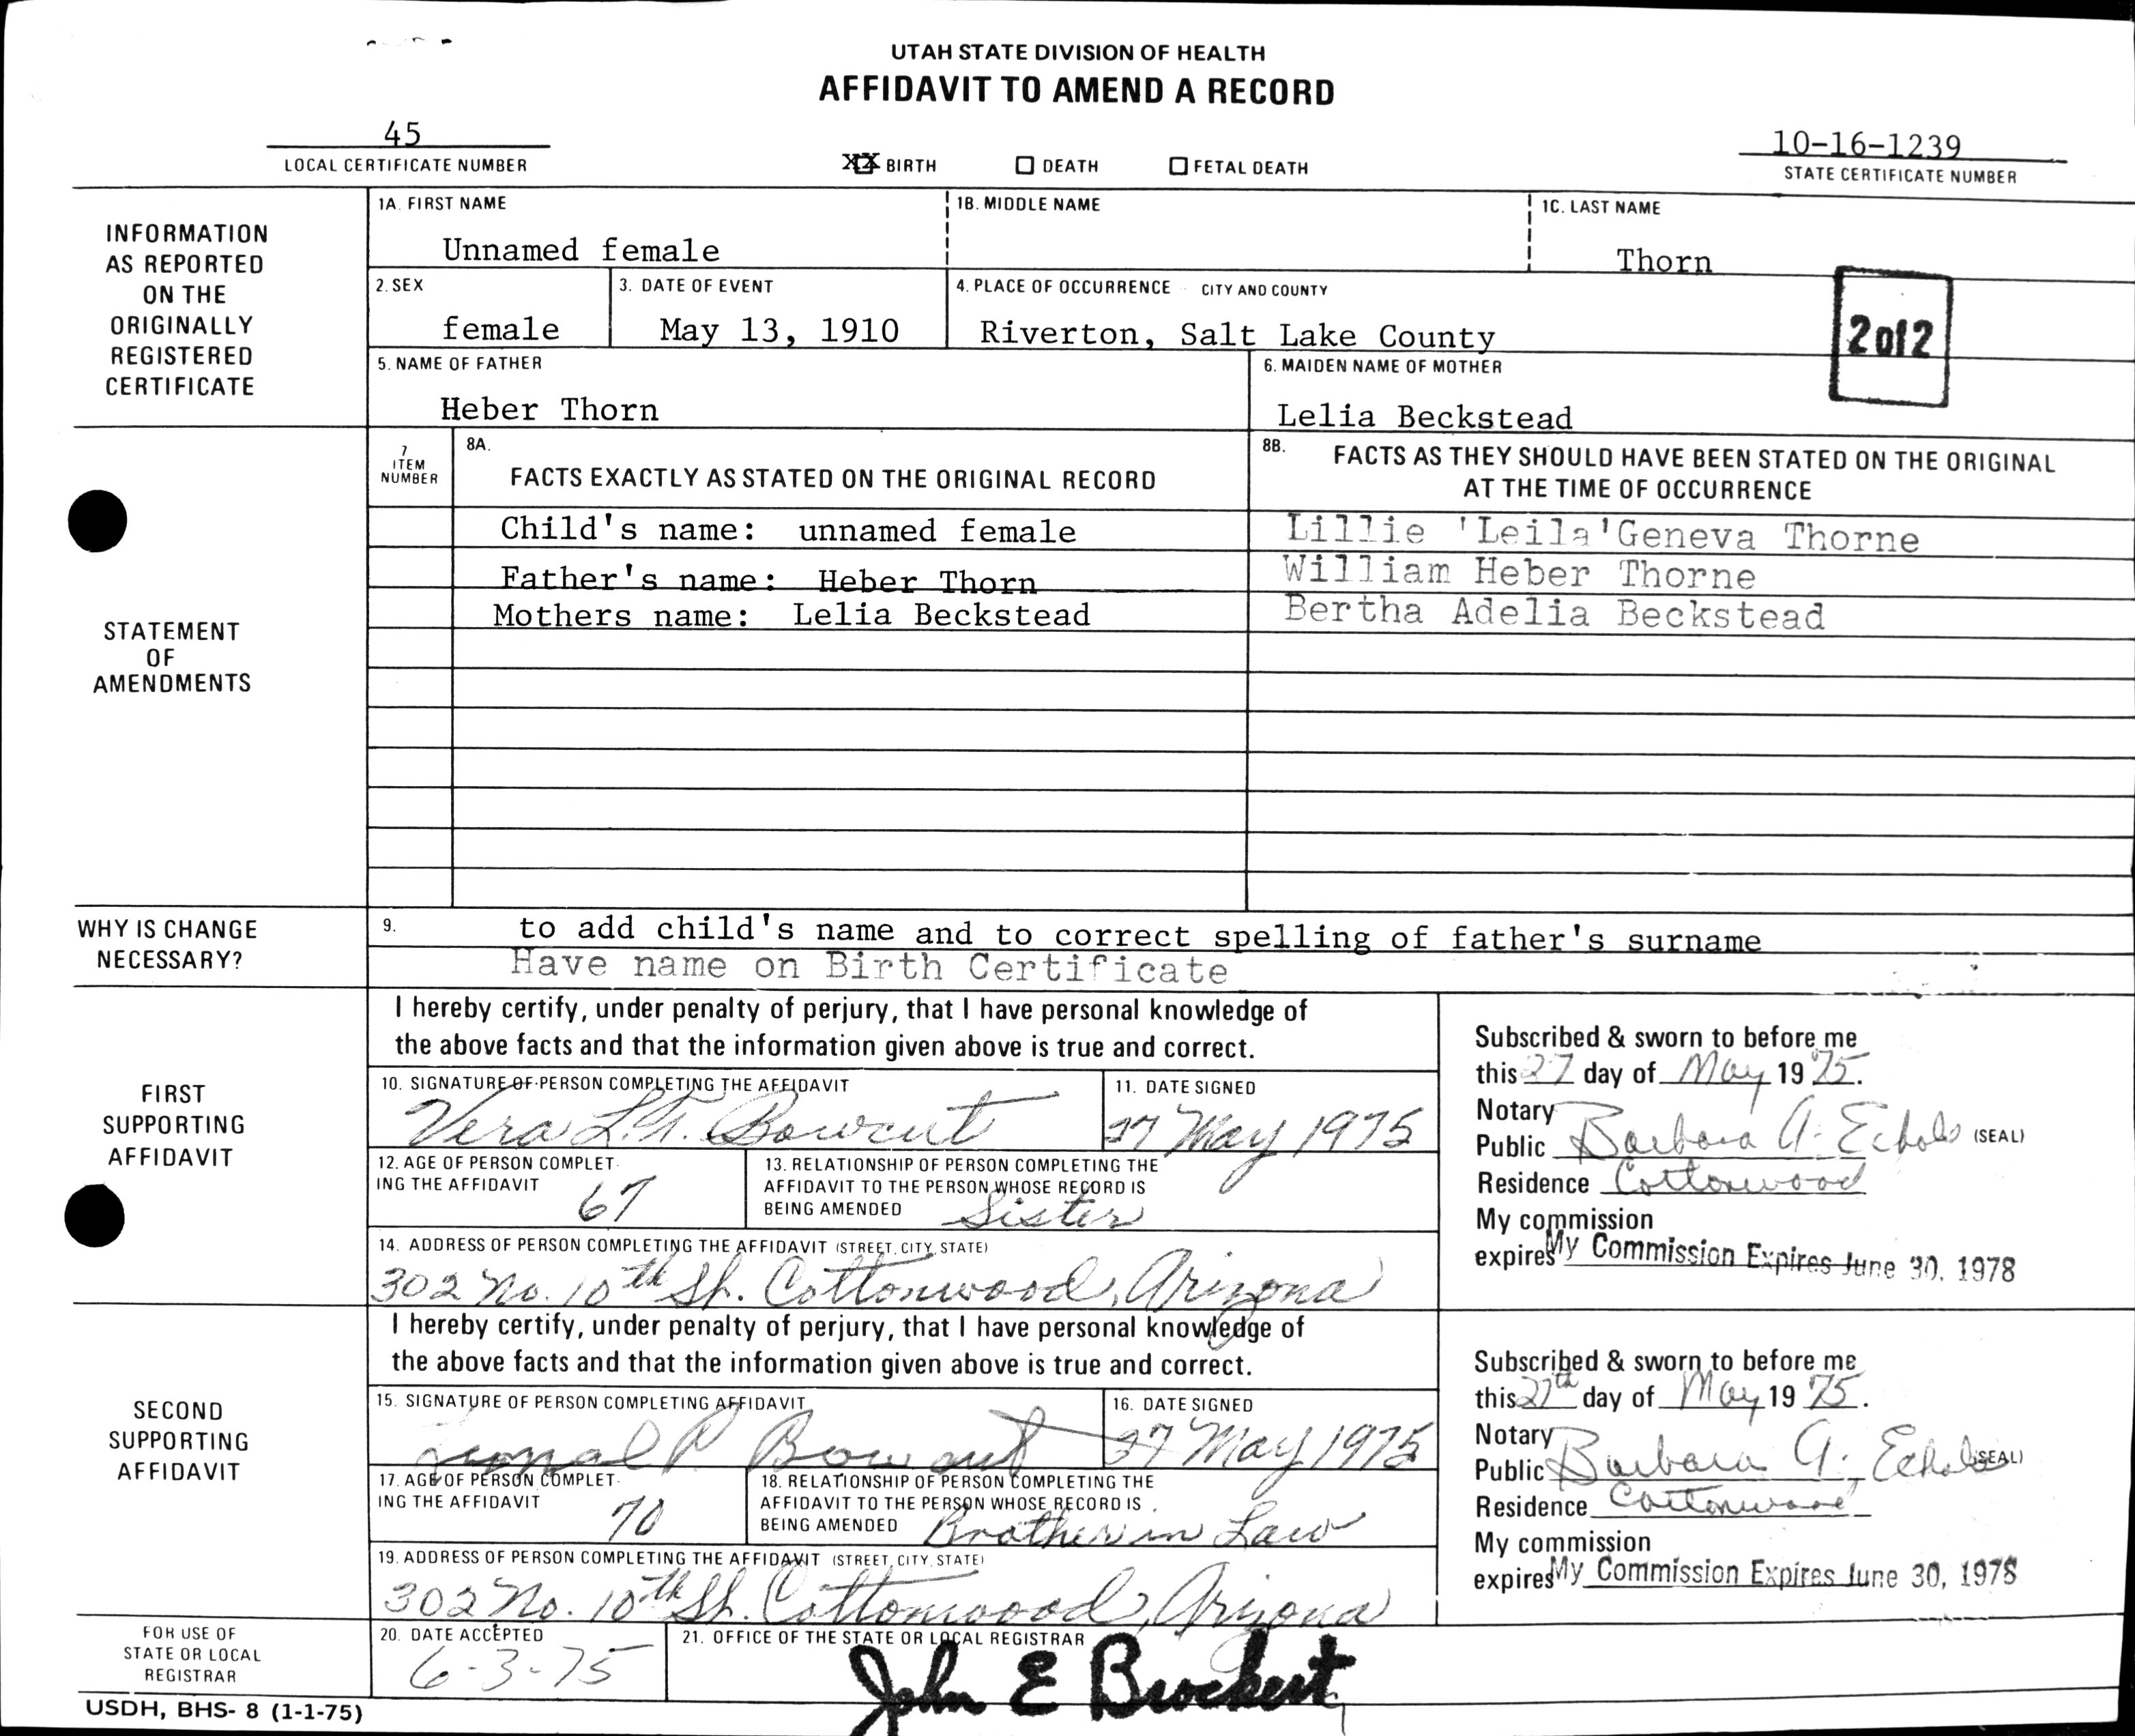 UTAH STATE DIVISION OF HEALTH
AFFIDAVIT TO AMEND A RECORD
45
LOCAL CERTIFICATE NUMBER
XX BIRTH
DEATH
FETAL DEATH
10-16-1239
STATE CERTIFICATE NUMBER
INFORMATION
AS REPORTED
ON THE
ORIGINALLY
REGISTERED
CERTIFICATE
1A. FIRST NAME
Unnamed female
1B. MIDDLE NAME
1C. LAST NAME
Thorn
2. SEX
female
3. DATE OF EVENT
May 13, 1910
4. PLACE OF OCCURRENCE CITY AND COUNTY
Riverton, Salt Lake County
2 of 2
5. NAME OF FATHER
Heber Thorn
6. MAIDEN NAME OF MOTHER
Lelia Beckstead
STATEMENT
OF
AMENDMENTS
7
ITEM
NUMBER
8A.
FACTS EXACTLY AS STATED ON THE ORIGINAL RECORD
8B.
FACTS AS THEY SHOULD HAVE BEEN STATED ON THE ORIGINAL
AT THE TIME OF OCCURRENCE
Child's name: unnamed female
Lillie 'Leila'Geneva Thorne
Father's name: Heber Thorn
William Heber Thorne
Mothers name: Lelia Beckstead
Bertha Adelia Beckstead
WHY IS CHANGE
NECESSARY?
9.
to add child's name and to correct spelling of father's surname
Have name on Birth Certificate
FIRST
SUPPORTING
AFFIDAVIT
I hereby certify, under penalty of perjury, that I have personal knowledge of
the above facts and that the information given above is true and correct.
10. SIGNATURE OF PERSON COMPLETING THE AFFIDAVIT
Vera L.T. Bowcut
11. DATE SIGNED
27 May 1975
12. AGE OF PERSON COMPLET-
ING THE AFFIDAVIT
67
13. RELATIONSHIP OF PERSON COMPLETING THE
AFFIDAVIT TO THE PERSON WHOSE RECORD IS
BEING AMENDED
Sister
14. ADDRESS OF PERSON COMPLETING THE AFFIDAVIT (STREET, CITY, STATE)
302 No. 10th St. Cottonwood, Arizona
Subscribed & sworn to before me
this 27 day of May 19 75.
Notary
Public Barbara A. Echols (SEAL)
Residence Cottonwood
My commission
expires My Commission Expires June 30, 1978
SECOND
SUPPORTING
AFFIDAVIT
I hereby certify, under penalty of perjury, that I have personal knowledge of
the above facts and that the information given above is true and correct.
15. SIGNATURE OF PERSON COMPLETING AFFIDAVIT
Bowcut
16. DATE SIGNED
27 May 1975
17. AGE OF PERSON COMPLET-
ING THE AFFIDAVIT
70
18. RELATIONSHIP OF PERSON COMPLETING THE
AFFIDAVIT TO THE PERSON WHOSE RECORD IS
BEING AMENDED
Brother in Law
19. ADDRESS OF PERSON COMPLETING THE AFFIDAVIT (STREET, CITY, STATE)
302 No. 10th St. Cottonwood, Arizona
Subscribed & sworn to before me
this 27th day of May 19 75.
Notary
Public Barbara A. Echols (SEAL)
Residence Cottonwood
My commission
expires My Commission Expires June 30, 1978
FOR USE OF
STATE OR LOCAL
REGISTRAR
20. DATE ACCEPTED
6-3-75
21. OFFICE OF THE STATE OR LOCAL REGISTRAR
John E Brockert
USDH, BHS- 8 (1-1-75)